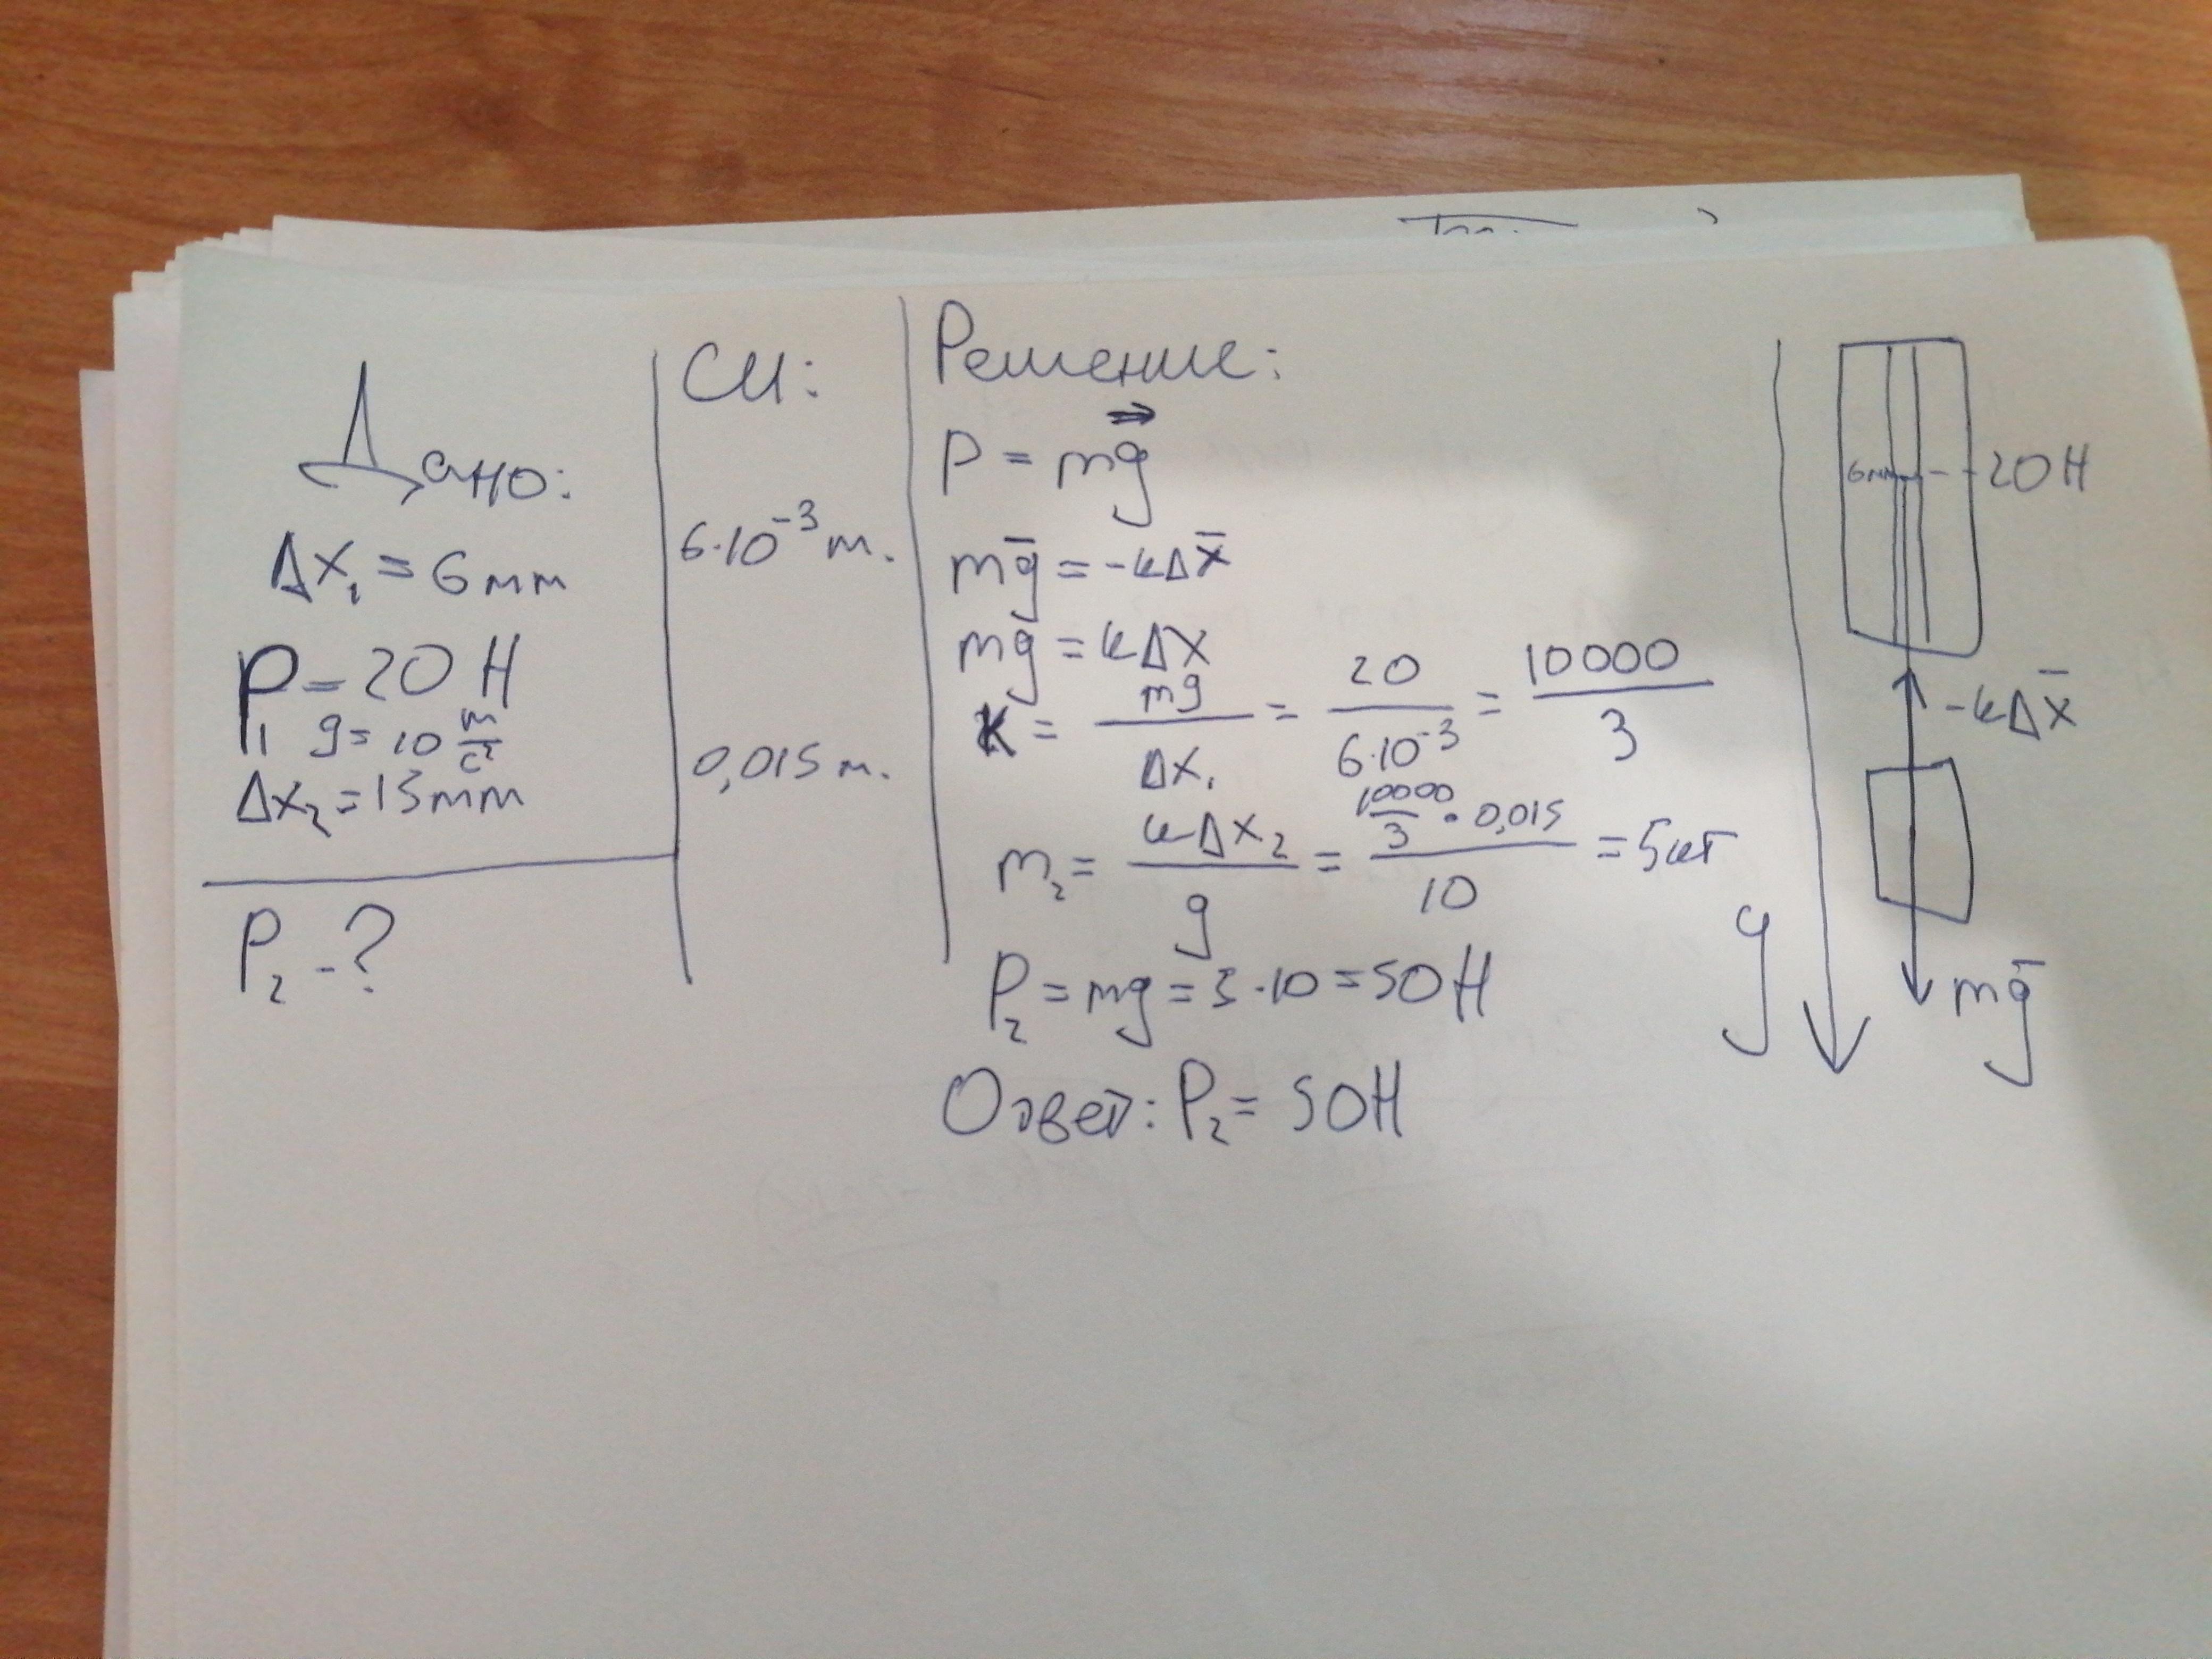 Дано:
Δx₁ = 6мм
P₁ = 20 Н
g = 10 м/с²
Δx₂ = 15мм
P₂ - ?
СИ:
6·10⁻³ м.
0,015 м.
Решение:
P = mg⃗
mg̅ = -kΔx̅
mg = kΔx
k = mg/Δx₁ = 20/6·10⁻³ = 10000/3
m₂ = kΔx₂/g = 10000/3 · 0,015/10 = 5кг
P₂ = mg = 5·10 = 50Н
Ответ: P₂ = 50Н
6мм
20Н
-kΔx̅
y
mg̅